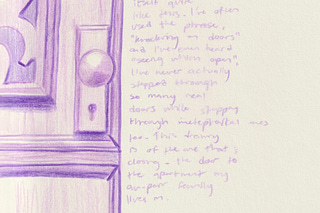 like this. I've often
used the phrase,
"knocking on doors"
and I've even heard
"seeing which open",
I've never actually
stepped through
so many real
doors while stepping
through metaphorical ones
too. This drawing
is of the one that's
closing - the door to
the apartment my
au-pair family
lives in